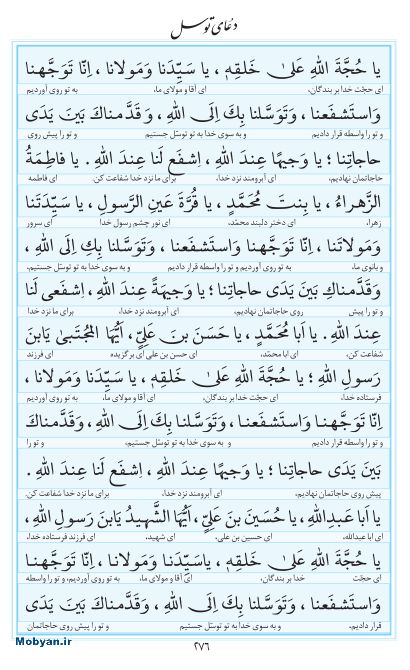 دعای توسل
یا حُجَّةَ اللهِ عَلیٰ خَلقِهٖ، یا سَیِّدَنا وَمَولانا، اِنّا تَوَجَّهنا
ای حجّت خدا بر بندگان، ای آقا و مولای ما، به تو روی آوردیم
وَاستَشفَعنا، وَتَوَسَّلنا بِكَ اِلَی اللهِ، وَقَدَّمناكَ بَینَ یَدَی
و تو را واسطه قرار دادیم و به سوی خدا به تو توسّل جستیم و تو را پیش روی
حاجاتِنا؛ یا وَجیهًا عِندَ اللهِ، اِشفَع لَنا عِندَ اللهِ. یا فاطِمَةُ
حاجاتمان نهادیم، ای آبرومند نزد خدا، برای ما نزد خدا شفاعت کن. ای فاطمه
الزَّهراءُ، یا بِنتَ مُحَمَّدٍ، یا قُرَّةَ عَینِ الرَّسولِ، یا سَیِّدَتَنا
زهرا، ای دختر دلبند محمّد، ای نور چشم رسول خدا ای سرور
وَمَولاتَنا، اِنّا تَوَجَّهنا وَاستَشفَعنا، وَتَوَسَّلنا بِكِ اِلَی اللهِ،
و بانوی ما، به تو روی آوردیم و تو را واسطه قرار دادیم و به سوی خدا به تو توسّل جستیم،
وَقَدَّمناكِ بَینَ یَدَی حاجاتِنا؛ یا وَجیهَةً عِندَ اللهِ، اِشفَعی لَنا
و تو را پیش روی حاجاتمان نهادیم، ای آبرومند نزد خدا، برای ما نزد خدا
عِندَ اللهِ. یا اَبا مُحَمَّدٍ، یا حَسَنَ بنَ عَلِیٍّ، اَیُّهَا المُجتَبیٰ یَابنَ
شفاعت کن. ای ابا محمّد، ای حسن بن علی ای برگزیده ای فرزند
رَسولِ اللهِ؛ یا حُجَّةَ اللهِ عَلیٰ خَلقِهٖ، یا سَیِّدَنا وَمَولانا،
فرستاده خدا، ای حجّت خدا بر بندگان، ای آقا و مولای ما، به تو روی آوردیم
اِنّا تَوَجَّهنا وَاستَشفَعنا، وَتَوَسَّلنا بِكَ اِلَی اللهِ، وَقَدَّمناكَ
و تو را واسطه قرار دادیم و به سوی خدا به تو توسّل جستیم، و تو را
بَینَ یَدَی حاجاتِنا؛ یا وَجیهًا عِندَ اللهِ، اِشفَع لَنا عِندَ اللهِ.
پیش روی حاجاتمان نهادیم، ای آبرومند نزد خدا، برای ما نزد خدا شفاعت کن.
یا اَبا عَبدِاللهِ، یا حُسَینَ بنَ عَلِیٍّ، اَیُّهَا الشَّهیدُ یَابنَ رَسولِ اللهِ،
ای ابا عبدالله، ای حسین بن علی، ای شهید، ای فرزند فرستاده خدا،
یا حُجَّةَ اللهِ عَلیٰ خَلقِهٖ، یاسَیِّدَنا وَمَولانا، اِنّا تَوَجَّهنا
ای حجّت خدا بر بندگان، ای آقا و مولای ما، به تو روی آوردیم، و تو را واسطه
وَاستَشفَعنا، وَتَوَسَّلنا بِكَ اِلَی اللهِ، وَقَدَّمناكَ بَینَ یَدَی
قرار دادیم، و به سوی خدا به تو توسّل جستیم و تو را پیش روی حاجاتمان
۲۷۶
Mobyan.ir